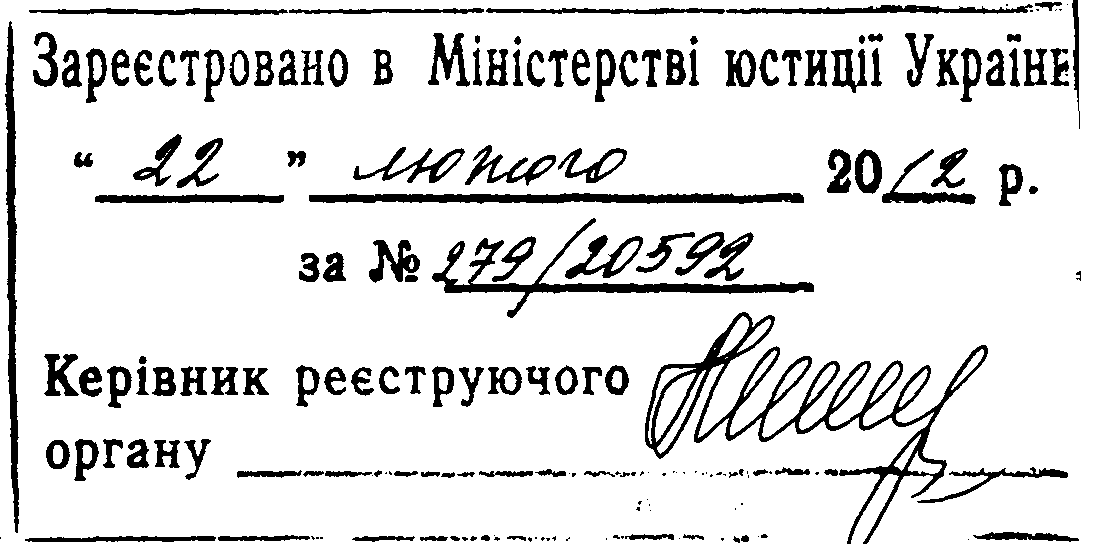 Зареєстровано в Міністерстві юстиції України
“ 22 ” лютого 2012 р.
за № 279/20592
Керівник реєструючого
органу